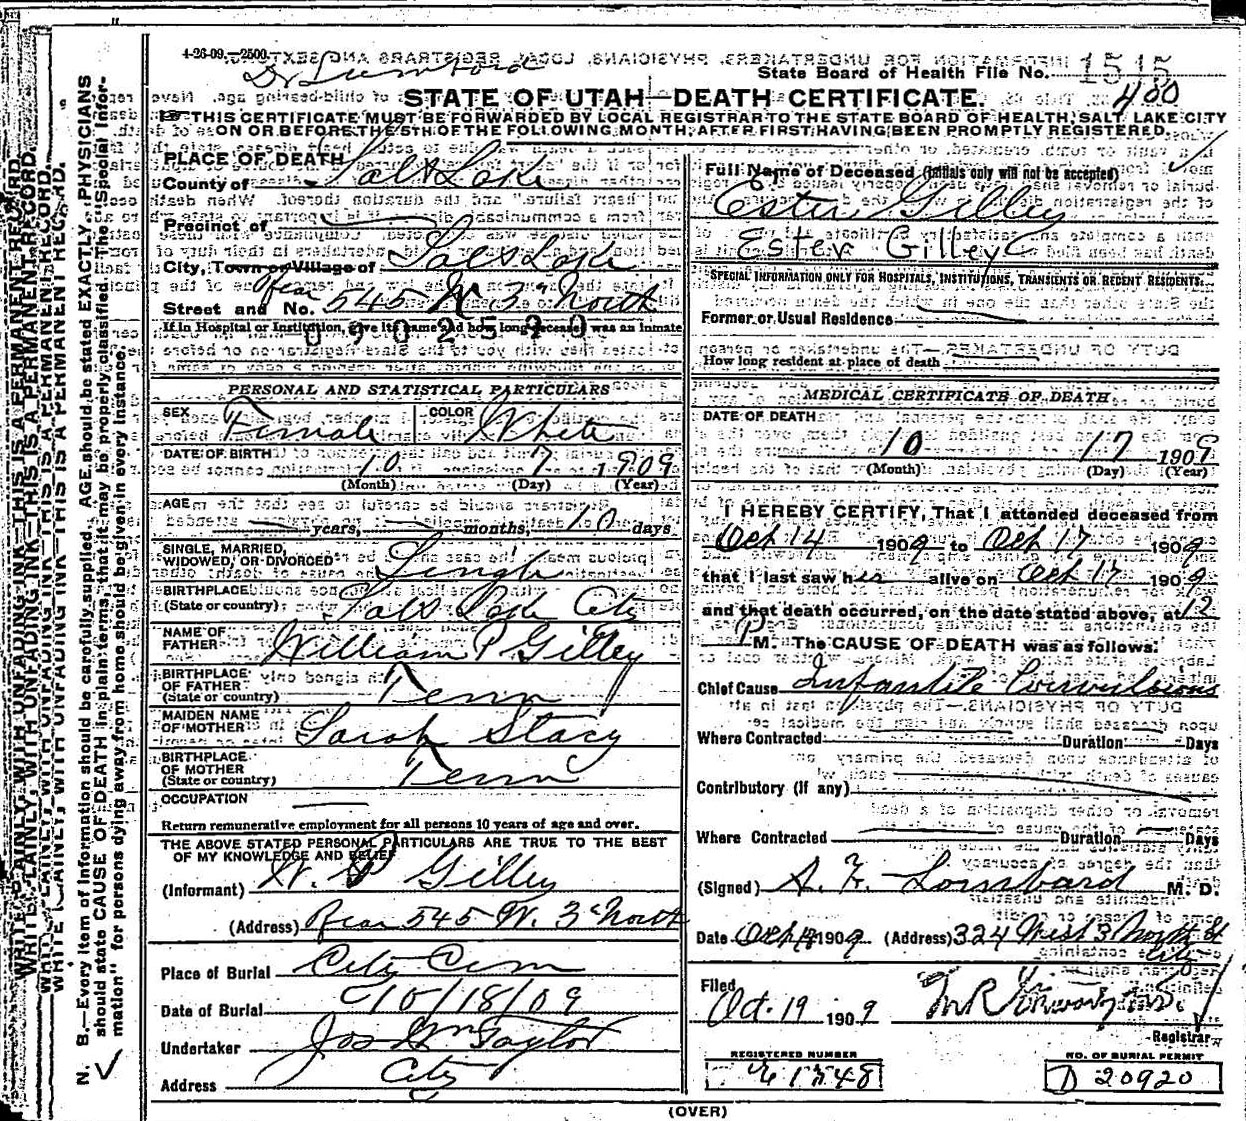 4-26-09.—2500.
State Board of Health File No. 1515
400
STATE OF UTAH—DEATH CERTIFICATE.
THIS CERTIFICATE MUST BE FORWARDED BY LOCAL REGISTRAR TO THE STATE BOARD OF HEALTH, SALT LAKE CITY
ON OR BEFORE THE 5TH OF THE FOLLOWING MONTH, AFTER FIRST HAVING BEEN PROMPTLY REGISTERED.
PLACE OF DEATH
County of Salt Lake
Precinct of
City, Town or Village of Salt Lake
Street and No. Rear 545 W. 3" North
If in Hospital or Institution, give its name and how long deceased was an inmate
0902520
PERSONAL AND STATISTICAL PARTICULARS
SEX Female COLOR White
DATE OF BIRTH 10 7 1909
(Month) (Day) (Year)
AGE — years, — months, 10 days
SINGLE, MARRIED,
WIDOWED, OR DIVORCED Single
BIRTHPLACE
(State or country) Salt Lake City
NAME OF
FATHER William P Gilley
BIRTHPLACE
OF FATHER
(State or country) Tenn
MAIDEN NAME
OF MOTHER Sarah Stacy
BIRTHPLACE
OF MOTHER
(State or country) Tenn
OCCUPATION
Return remunerative employment for all persons 10 years of age and over.
THE ABOVE STATED PERSONAL PARTICULARS ARE TRUE TO THE BEST
OF MY KNOWLEDGE AND BELIEF
(Informant) W. P Gilley
(Address) Rear 545 W. 3" North
Place of Burial City Cem
Date of Burial 10/18/09
Undertaker Jos Wm Taylor
Address City
Full Name of Deceased (Initials only will not be accepted)
Ester Gilley
Ester Gilley
SPECIAL INFORMATION ONLY FOR HOSPITALS, INSTITUTIONS, TRANSIENTS OR RECENT RESIDENTS.
Former or Usual Residence
How long resident at place of death
MEDICAL CERTIFICATE OF DEATH
DATE OF DEATH
10 17 1909
(Month) (Day) (Year)
I HEREBY CERTIFY, That I attended deceased from
Oct 14 1909 to Oct 17 1909
that I last saw her alive on Oct 17 1909
and that death occurred, on the date stated above, at 12
P M. The CAUSE OF DEATH was as follows:
Chief Cause Infantile Convulsions
Where Contracted Duration Days
Contributory (if any)
Where Contracted Duration Days
(Signed) A. F. Lombard M. D.
Date Oct 1909 (Address) 324 West 3 North St
City
Filed
Oct. 19 1909
Registrar
REGISTERED NUMBER
NO. OF BURIAL PERMIT
D 20920
(OVER)
N. B.—Every item of information should be carefully supplied. AGE should be stated EXACTLY. PHYSICIANS
should state CAUSE OF DEATH in plain terms, that it may be properly classified. The "Special Infor-
mation" for persons dying away from home should be given in every instance.
WRITE PLAINLY, WITH UNFADING INK—THIS IS A PERMANENT RECORD.